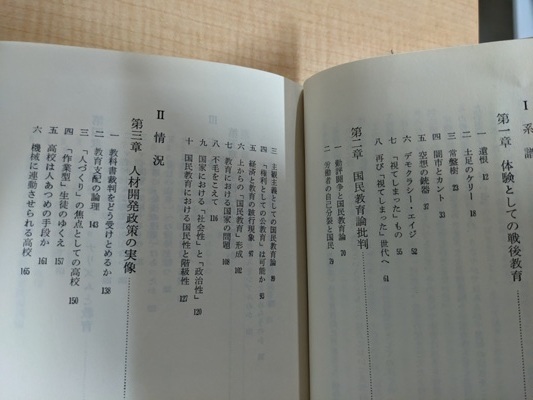 I 系譜
第一章 体験としての戦後教育
一 遺恨 12
二 土足のケリー 18
三 常盤樹 23
四 闇市とカント 33
五 空想の銃器 37
六 デモクラシー・エイジ 52
七 「視てしまった」もの 55
八 再び「視てしまった」世代へ 61
第二章 国民教育論批判
一 勤評闘争と国民教育論 70
二 労働者の自己分裂と国民 74
三 主観主義としての国民教育論 89
四 「権利としての公教育」は可能か 93
五 経済と教育の跛行現象 97
六 上からの「国民教育」形成 102
七 教育における国家の問題 108
八 不毛をこえて 116
九 国家における「社会性」と「政治性」 120
十 国民教育における国民性と階級性 127
II 情況
第三章 人材開発政策の実像
一 教科書裁判をどう受けとめるか 138
二 教育支配の論理 143
三 「人づくり」の焦点としての高校 150
四 「作業型」生徒のゆくえ 157
五 高校は人あつめの手段か 161
六 機械に連動させられる高校 165